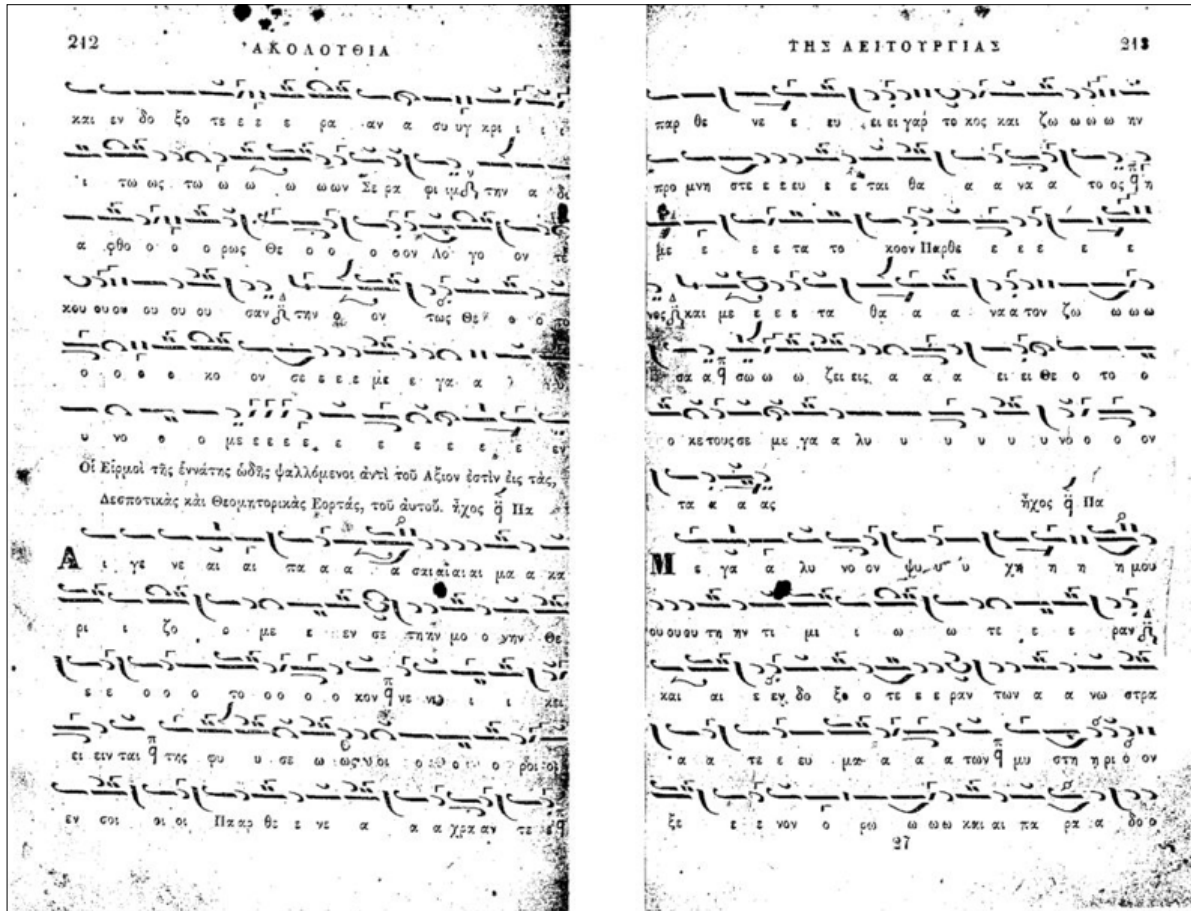 212
ἈΚΟΛΟΥΘΙΑ
και εν δο ξο τε ε ε ε ρα αν α συ υγ κρι ι ι
ι τω ως τω ω ω ω ων Σε ρα φι ιμ την α δι
α φθο ο ο ο ρως Θε ο ο ο ον Λο γο ον τε
κου ου ου ου ου ου σαν την ο ον τως Θε ο ο το
ο ο ο ο κο ον σε ε ε ε με ε γα α λ
υ νο ο ο με ε ε ε ε ε ε ε ε ε εν
Οἱ Εἱρμοὶ τῆς ἐννάτης ὠδῆς ψαλλόμενοι ἀντὶ τοῦ Ἄξιον ἐστὶν εἰς τὰς,
Δεσποτικὰς καὶ Θεομητορικὰς Ἑορτάς, τοῦ αὐτοῦ. ἦχος Πα
Α ι γε νε αι αι πα α α α σαι αι αι αι μα α κα
ρι ι ζο ο με ε εν σε τη ην μο ο νην Θε
ε ε ο ο ο το ο ο ο ο κον νε νι ι ι κει
ει ειν ται της φυ υ σε ω ως οι οι ο ο ο ροι οι
εν σοι οι οι Πα αρ θε ε νε α α α χρα αν τε ε
ΤΗΣ ΛΕΙΤΟΥΡΓΙΑΣ
213
παρ θε νε ε ευ ει ει γαρ το κος και ζω ω ω ω ην
προ μνη στε ε ε ευ ε ε ται θα α α να α το ος η
με ε ε ε τα το κο ον Παρθε ε ε ε ε ε
νος και με ε ε ε τα θα α α να α τον ζω ω ω ω
σα α σω ω ω ζει εις α α α ει ει Θε ο το ο
ο κε τους σε με γα α λυ υ υ υ υ υ νο ο ο ον
τα α α ας
ἦχος Πα
Μ ε γα α λυ νο ον ψυ υ υ χη η η η μου
ου ου ου τη ην τι μι ι ω ω τε ε ε ραν
και αι ε εν δο ξο ο τε ε ε ραν των α α νω στρα
α α τε ε ευ μα α α α των μυ στη η ρι ο ον
ξε ε ε νον ο ρω ω ω ω και αι πα ρα α δο ο
27